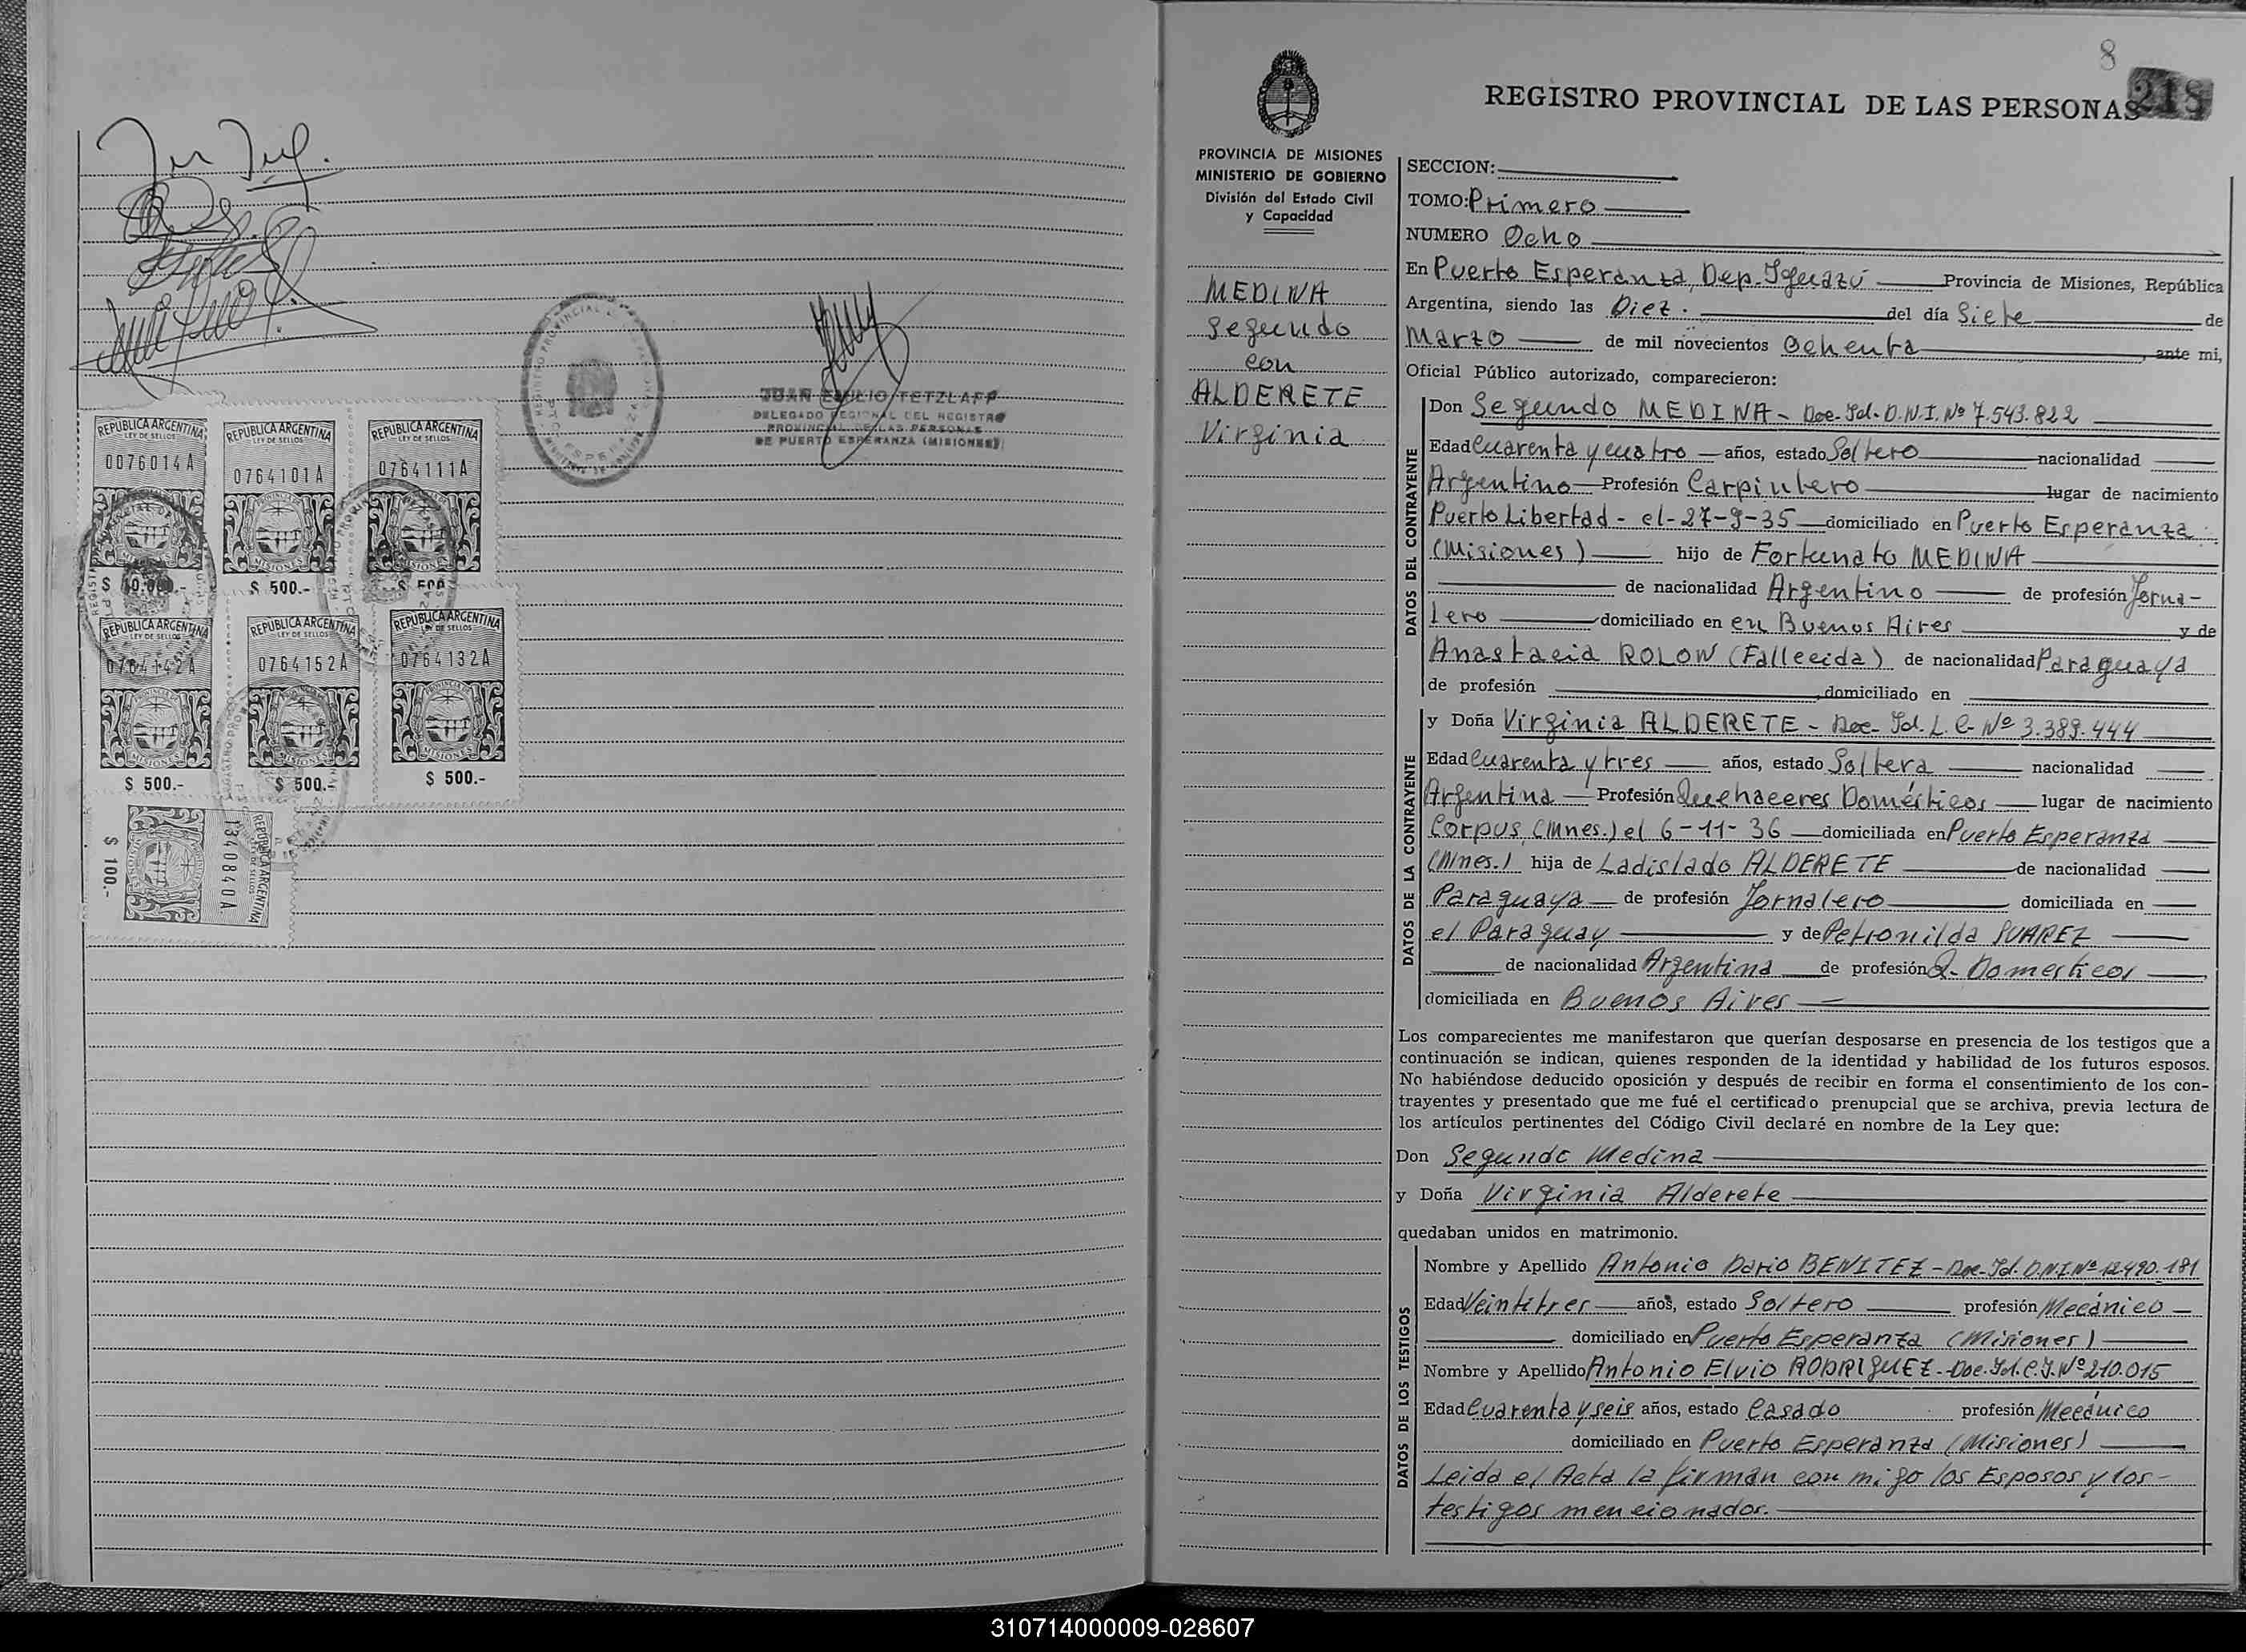 JUAN EMILIO TETZLAFF
DELEGADO REGIONAL DEL REGISTRO
PROVINCIAL DE LAS PERSONAS
DE PUERTO ESPERANZA (MISIONES)
REPUBLICA ARGENTINA
LEY DE SELLOS
0076014A
$ 10.000.-
REPUBLICA ARGENTINA
LEY DE SELLOS
0764101A
MISIONES
$ 500.-
REPUBLICA ARGENTINA
LEY DE SELLOS
0764111A
$ 500
REPUBLICA ARGENTINA
LEY DE SELLOS
0764142A
MISIONES
$ 500.-
REPUBLICA ARGENTINA
LEY DE SELLOS
0764152A
MISIONES
$ 500.-
REPUBLICA ARGENTINA
LEY DE SELLOS
0764132A
MISIONES
$ 500.-
REPUBLICA ARGENTINA
LEY DE SELLOS
1340840A
$ 100.-
8
218
REGISTRO PROVINCIAL DE LAS PERSONAS
PROVINCIA DE MISIONES
MINISTERIO DE GOBIERNO
División del Estado Civil
y Capacidad
MEDINA
Segundo
con
ALDERETE
Virginia
SECCION:
TOMO: Primero
NUMERO Ocho
En Puerto Esperanza, Dep. Iguazú Provincia de Misiones, República
Argentina, siendo las Diez. del día Siete de
Marzo de mil novecientos Ochenta, ante mi,
Oficial Público autorizado, comparecieron:
DATOS DEL CONTRAYENTE
Don Segundo MEDINA - Doc. Id. D.N.I. Nº 7.543.822
Edad Cuarenta y cuatro años, estado Soltero nacionalidad
Argentino Profesión Carpintero lugar de nacimiento
Puerto Libertad - el - 27-9-35 domiciliado en Puerto Esperanza
(Misiones) hijo de Fortunato MEDINA
de nacionalidad Argentino de profesión Jorna-
lero domiciliado en en Buenos Aires y de
Anastacia ROLON (Fallecida) de nacionalidad Paraguaya
de profesión domiciliado en
DATOS DE LA CONTRAYENTE
y Doña Virginia ALDERETE - Doc. Id. L.C. Nº 3.389.444
Edad Cuarenta y tres años, estado Soltera nacionalidad
Argentina Profesión Quehaceres Domésticos lugar de nacimiento
Corpus (Mnes.) el 6-11-36 domiciliada en Puerto Esperanza
(Mnes.) hija de Ladislado ALDERETE de nacionalidad
Paraguaya de profesión Jornalero domiciliada en
el Paraguay y de Petronilda SUAREZ
de nacionalidad Argentina de profesión Q. Domesticos
domiciliada en Buenos Aires
Los comparecientes me manifestaron que querían desposarse en presencia de los testigos que a
continuación se indican, quienes responden de la identidad y habilidad de los futuros esposos.
No habiéndose deducido oposición y después de recibir en forma el consentimiento de los con-
trayentes y presentado que me fué el certificado prenupcial que se archiva, previa lectura de
los artículos pertinentes del Código Civil declaré en nombre de la Ley que:
Don Segundo Medina
y Doña Virginia Alderete
quedaban unidos en matrimonio.
DATOS DE LOS TESTIGOS
Nombre y Apellido Antonio Dario BENITEZ - Doc. Id. D.N.I. Nº 12.490.181
Edad Veintitres años, estado Soltero profesión Mecánico
domiciliado en Puerto Esperanza (Misiones)
Nombre y Apellido Antonio Elvio RODRIGUEZ - Doc. Id. C.I. Nº 210.015
Edad Cuarenta y seis años, estado Casado profesión Mecánico
domiciliado en Puerto Esperanza (Misiones)
Leida el Acta la firman con migo los Esposos y los -
testigos mencionados.
310714000009-028607